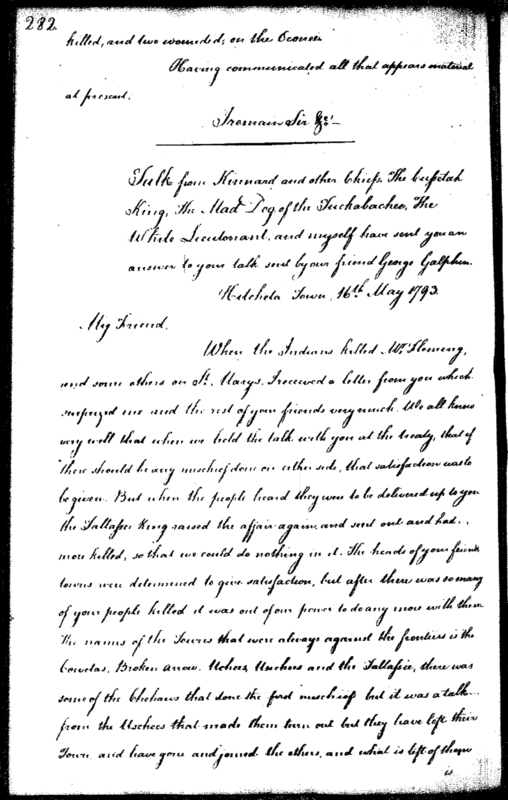 282.
killed, and two wounded, on the Oconee.
Having communicated all that appears material
at present.
I remain Sir &c.
Talk from Kinnard and other Chiefs. The Cussetah
King, The Mad Dog, of the Tuckabachee, The
White Lieutenant, and myself have sent you an
answer to your talk sent by our friend George Galphin.
Hitcheta Town, 16th May 1793.
My Friend.
When the Indians killed Mr. Fleming,
and some others on St. Marys, I received a letter from you which
surprized me and the rest of your friends very much. We all know
very well that when we held the talk with you at the treaty, that if
there should be any mischief done on either side, that satisfaction was to
be given. But when the people heard they were to be delivered up to you
the Tallassee King raised the affair again, and sent out and had
more killed, so that we could do nothing in it. The heads of your friends
towns were determined to give satisfaction, but after there was so many
of your people killed it was out of our power to do any more with them
The names of the Towns that were always against the frontiers is the
Cowetas, Broken arrow, Uchees, Usuchees and the Tallassee, there was
some of the Chehaws that done the first mischief but it was a talk
from the Uschees that made them turn out but they have left their
Town and have gone and joined the others, and what is left of them
is